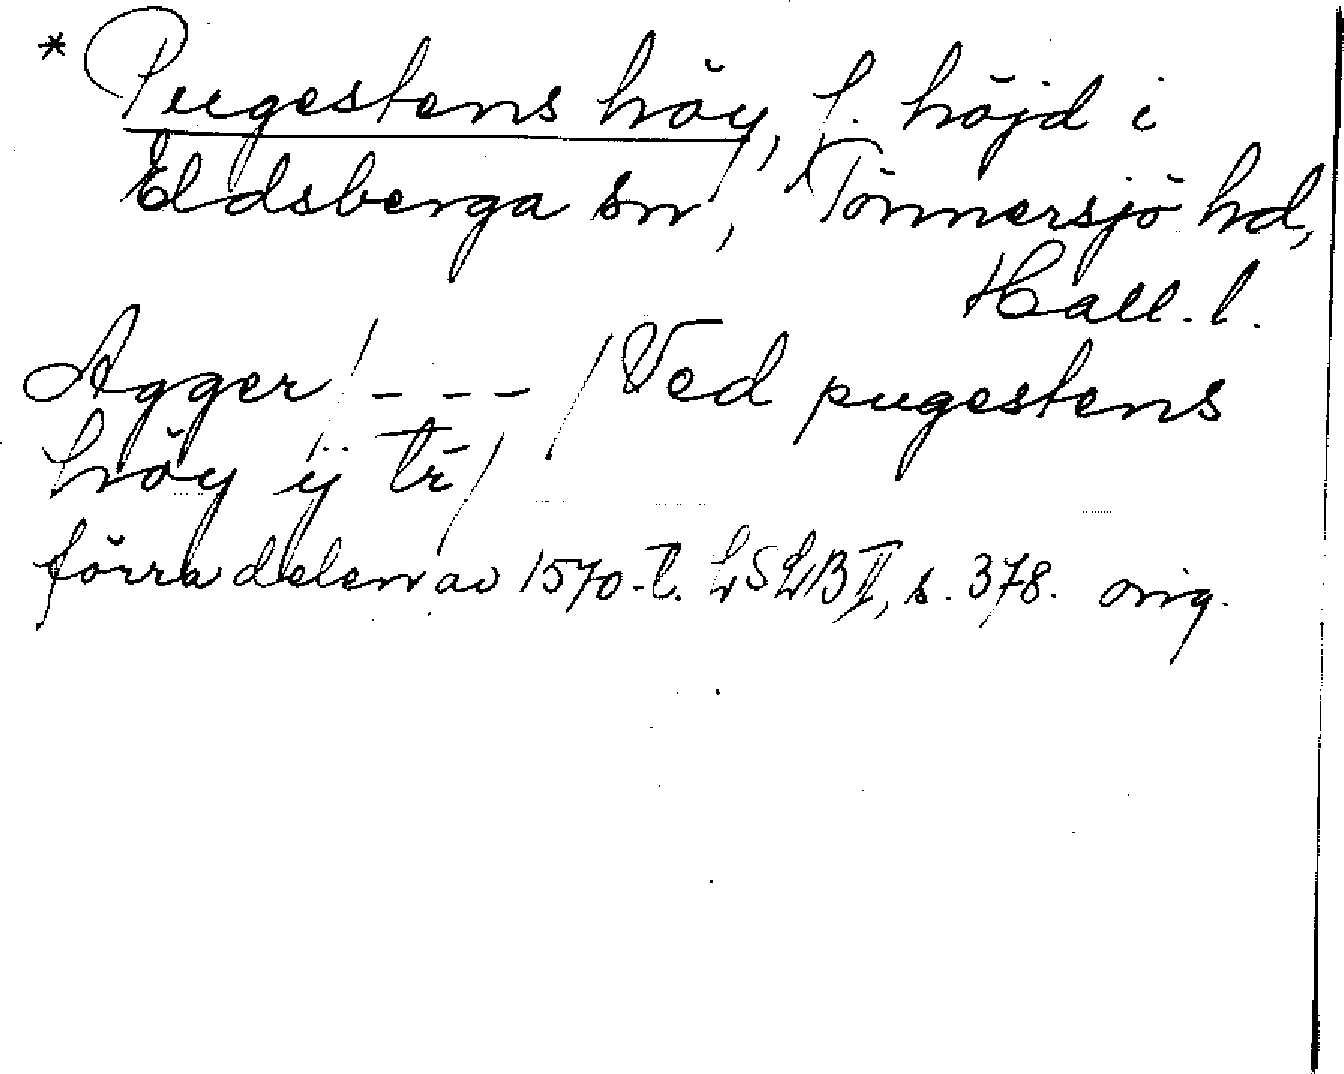 * Pugestens höy, f. höjd i
Eldsberga sn, Tönnersjö hd,
Hall. l.
Agger / - - - / Ved pugestens
höy ÿ tr /
förra delen av 1570-t. LSLB II, s. 378. orig.